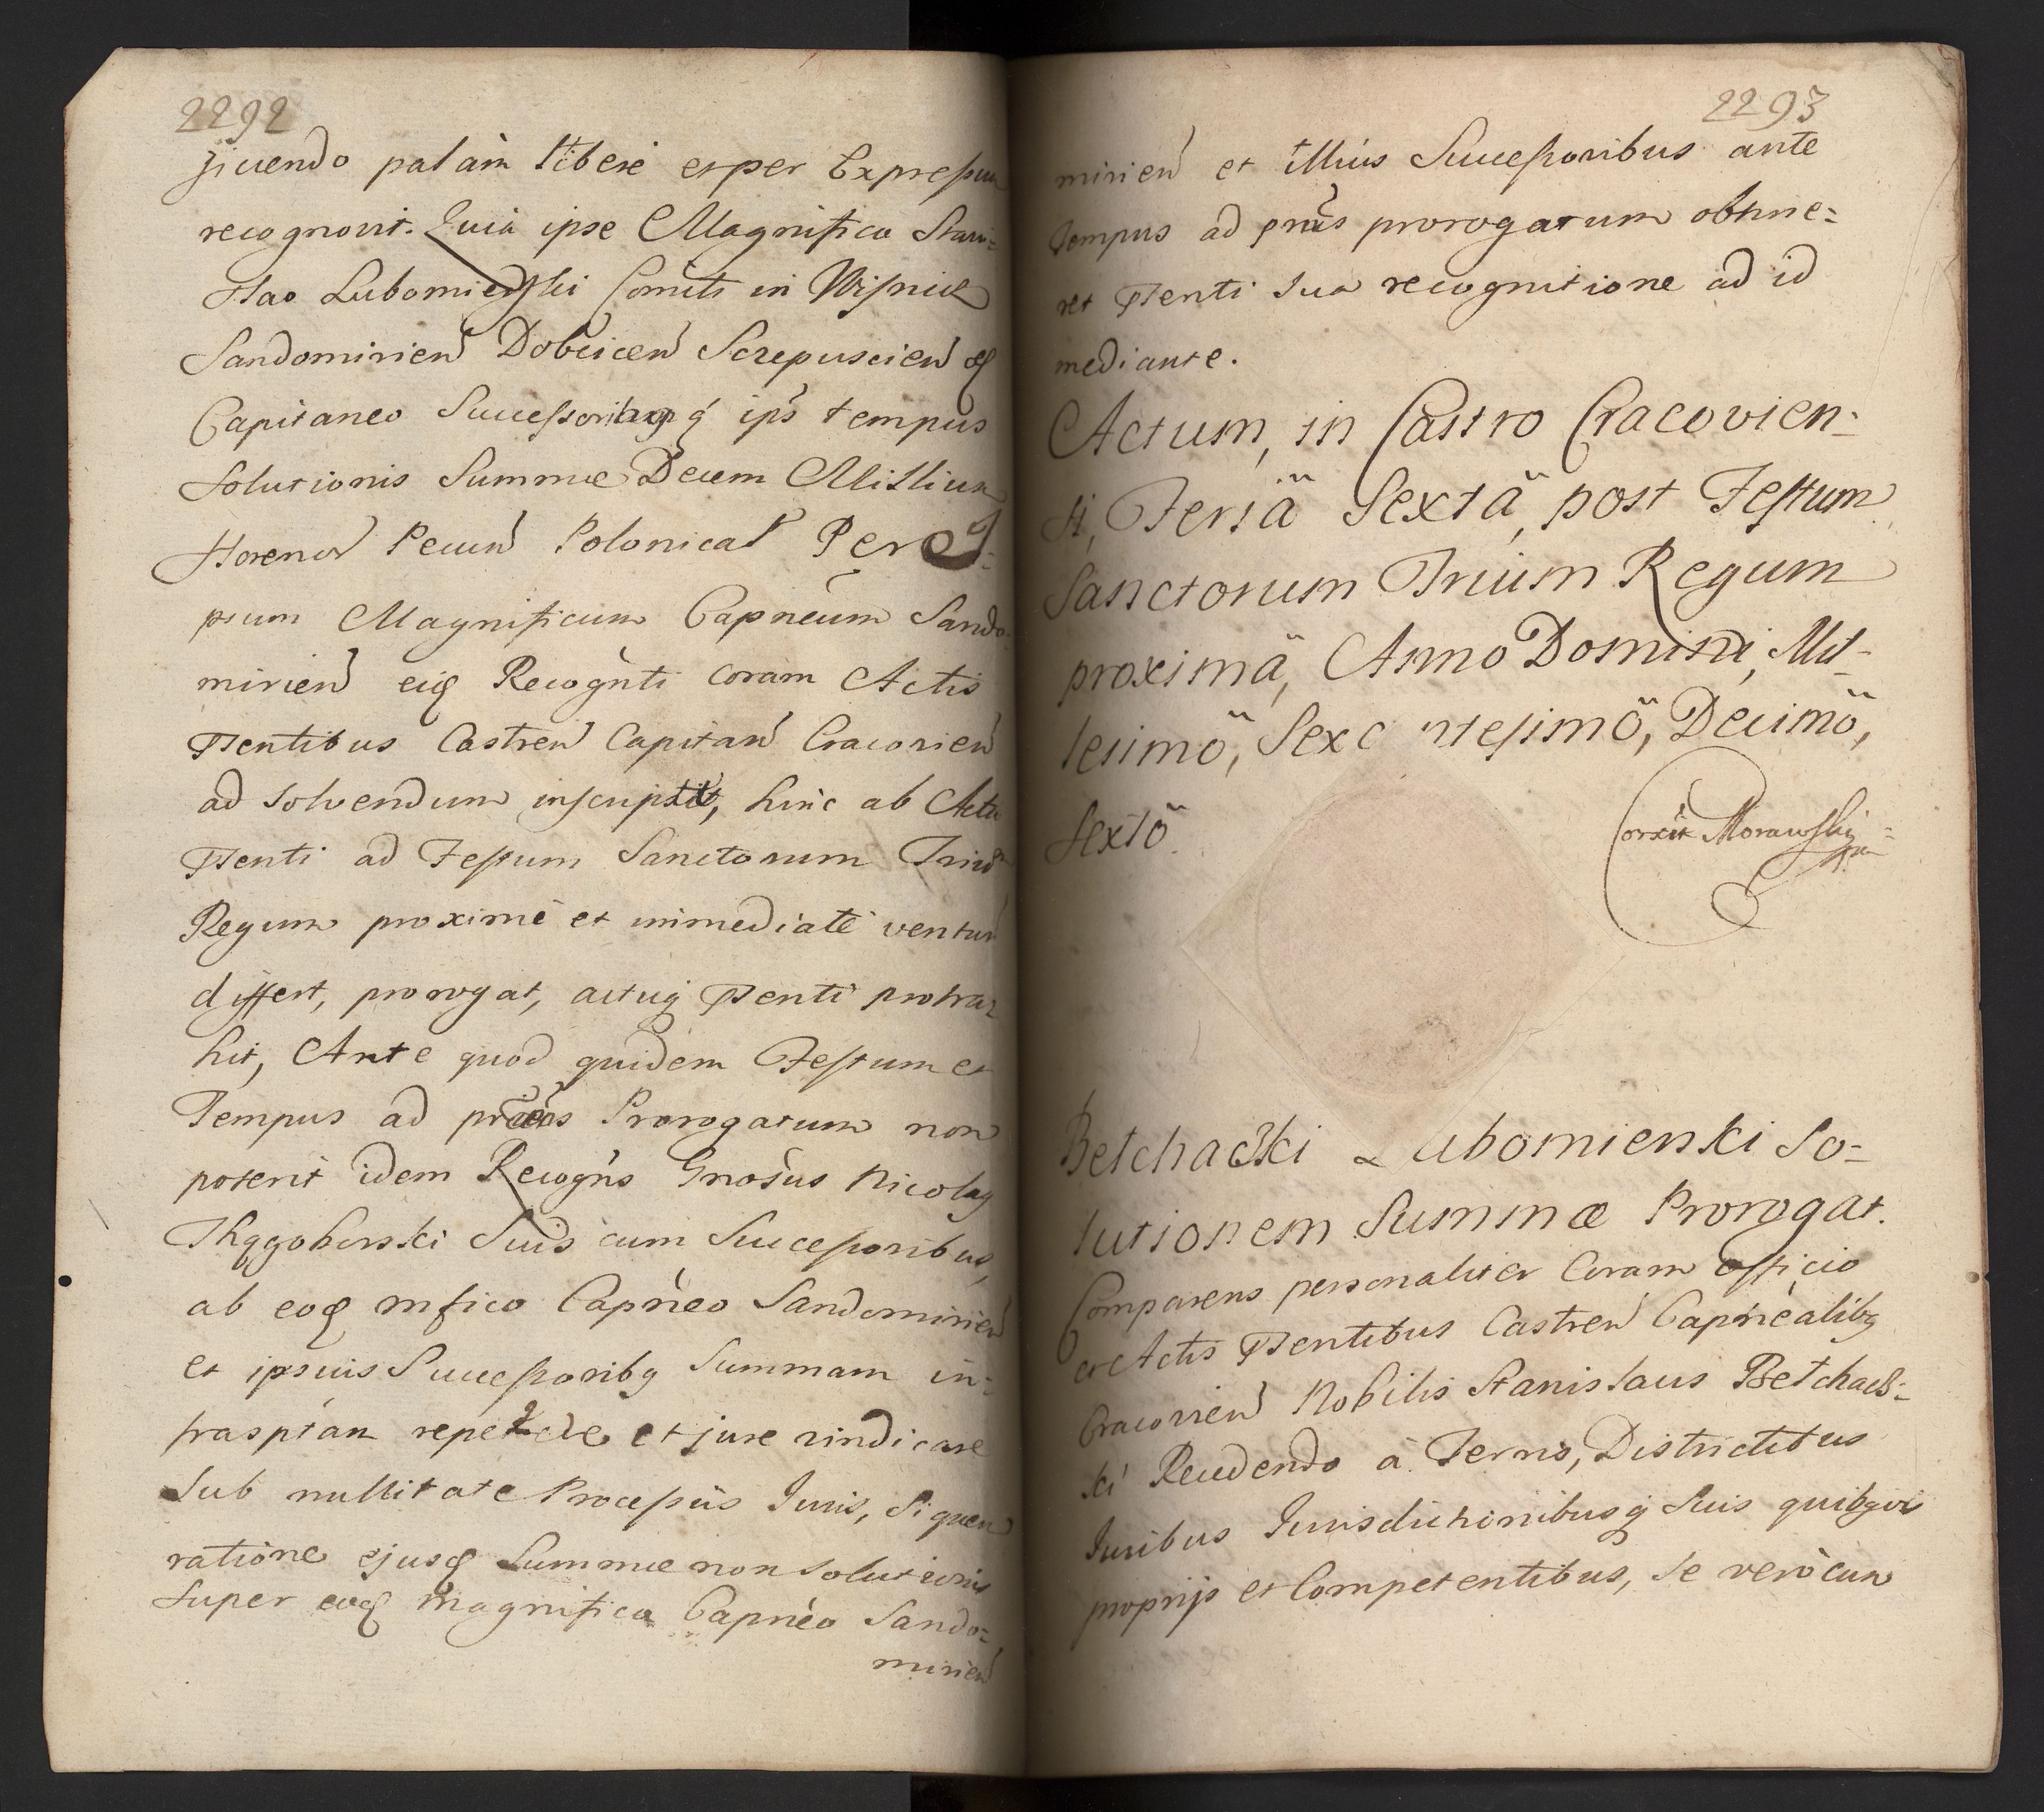 2292
jiciendo palàm liberè et per Expressum
recognovit. Quia ipse Magnifico Stani=
slao Lubomierski Comiti in Wisnicz
Sandomirien Dobczicen Scepuscien q
Capitaneo Successoribusq ips tempus
solutionis Summæ Decem Millium
florenor Pecun Polonical Per
psum Magnificum Capneum Sando=
mirien eiq Recognti coram Actis
Pntibus Castren Capitan Cracovien
ad solvendum inscript, hinc ab Actu
Pnti ad Festum Sanctorum Trium
Regum proximè et immediatè ventur
differt, prorogat, actuq Pnti protra=
hit, Ante quod quidem Festum et
Tempus ad Prorogatum non
poterit idem Recogns Gnosus Nicolaq
suis cum Successoribus,
ab eoq mfico Capneo Sandomirien
et ipsius Successoribq Summam in=
fraspta repetere et jure vindicare
Sub nullitate Processus Juris, si quem
ratione ejusq Summæ non solutionis
super eoq magnifico Capnéo Sando=
mirien
2293
mirien et illius Successoribus ante
tempus ad pns prorogatum obtine=
ret Pnti sua recognitione ad id
mediante.
Actum, in Castro Cracovien=
si, Feriä Sextä, post Festum
Sanctorum Trium Regum
proximä, Anno Domini, Mil=
lesimö, Sexc ntesimö, Decimö,
Sextö.
Corxit Morawski
Betchacki Lubomienski So=
lutionem Summæ Prorogat.
Comparens personaliter Coram officio
et Actis Pntibus Castren Capnealibq
Cracovien Nobilis Stanislaus Betchac=
ki Recedendo à Terris, Districtibus
Juribus Jurisdictionibusq suis quibqvis
proprijs et Competentibus, se verò cum